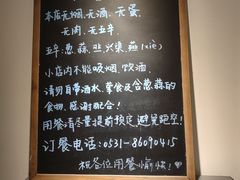 本店无烟、无酒、无蛋、
无肉、无五辛。
五辛：葱、蒜、韭、兴渠、薤(xiè)
小店内不能吸烟、饮酒，
请勿自带酒水、荤食及含葱蒜的
食物，感谢配合！
用餐请尽量提前预定，避免跑空！
订餐电话：0531-86090415
祝各位用餐愉快！